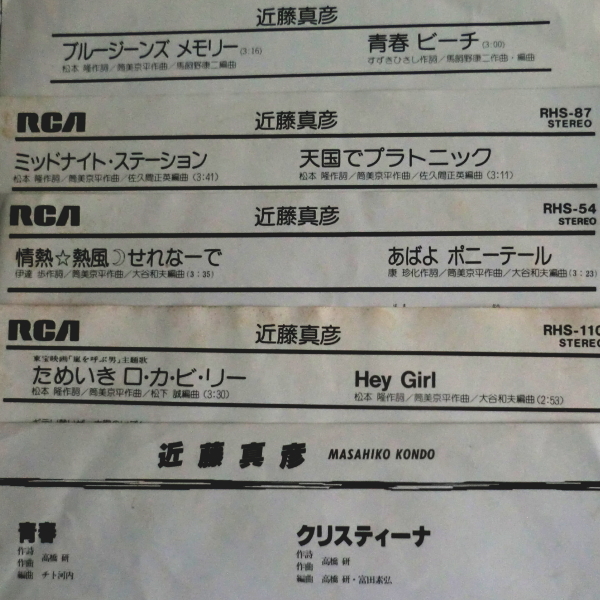 近藤真彦
ブルージーンズ メモリー(3:16) 青春 ビーチ(3:00)
松本 隆作詞／筒美京平作曲／馬飼野康二編曲 すずきひさし作詞／馬飼野康二作曲・編曲
RCA 近藤真彦 RHS-87
STEREO
ミッドナイト・ステーション 天国でプラトニック
松本 隆作詞／筒美京平作曲／佐久間正英編曲(3:41) 松本 隆作詞／筒美京平作曲／佐久間正英編曲(3:11)
RCA 近藤真彦 RHS-54
STEREO
情熱☆熱風☽せれなーで あばよ ポニーテール
伊達 歩作詞／筒美京平作曲／大谷和夫編曲(3:35) 康 珍化作詞／筒美京平作曲／大谷和夫編曲(3:23)
RCA 近藤真彦 RHS-110
STEREO
東宝映画「嵐を呼ぶ男」主題歌
ためいき ロ・カ・ビ・リー Hey Girl
松本 隆作詞／筒美京平作曲／松下 誠編曲(3:30) 松本 隆作詞／筒美京平作曲／大谷和夫編曲(2:53)
近藤真彦 MASAHIKO KONDO
青春 クリスティーナ
作詩 作詩
作曲 高橋 研 作曲 高橋 研
編曲 チト河内 編曲 高橋 研・富田素弘